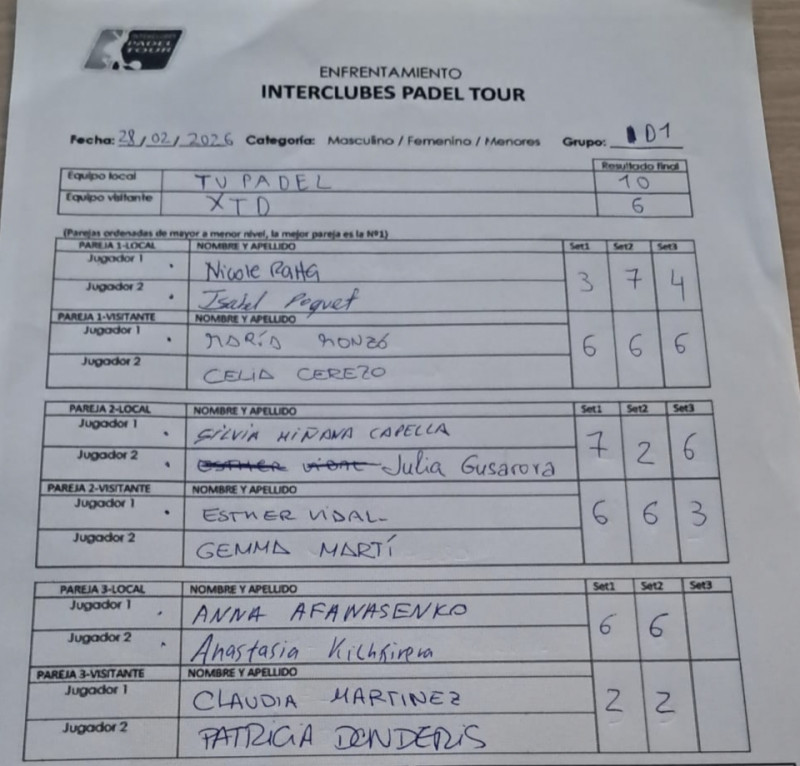 INTERCLUBES
PADEL
TOUR
ENFRENTAMIENTO
INTERCLUBES PADEL TOUR
Fecha: 28/02/2026 Categoría: Masculino / Femenino / Menores Grupo: D1
Resultado final
Equipo local TU PADEL 10
Equipo visitante XTD 6
(Parejas ordenadas de mayor a menor nivel, la mejor pareja es la Nº1)
PAREJA 1-LOCAL NOMBRE Y APELLIDO Set1 Set2 Set3
Jugador 1 Nicole 3 7 4
Jugador 2 Isabel Poquet
PAREJA 1-VISITANTE NOMBRE Y APELLIDO
Jugador 1 MARÍA MONZÓ 6 6 6
Jugador 2 CELIA CEREZO
PAREJA 2-LOCAL NOMBRE Y APELLIDO Set1 Set2 Set3
Jugador 1 SILVIA MIÑANA CAPELLA 7 2 6
Jugador 2 ESTHER VIDAL Julia Gusarova
PAREJA 2-VISITANTE NOMBRE Y APELLIDO
Jugador 1 ESTHER VIDAL 6 6 3
Jugador 2 GEMMA MARTÍ
PAREJA 3-LOCAL NOMBRE Y APELLIDO Set1 Set2 Set3
Jugador 1 ANNA AFANASENKO 6 6
Jugador 2 Anastasia
PAREJA 3-VISITANTE NOMBRE Y APELLIDO
Jugador 1 CLAUDIA MARTINEZ 2 2
Jugador 2 PATRICIA DONDERIS